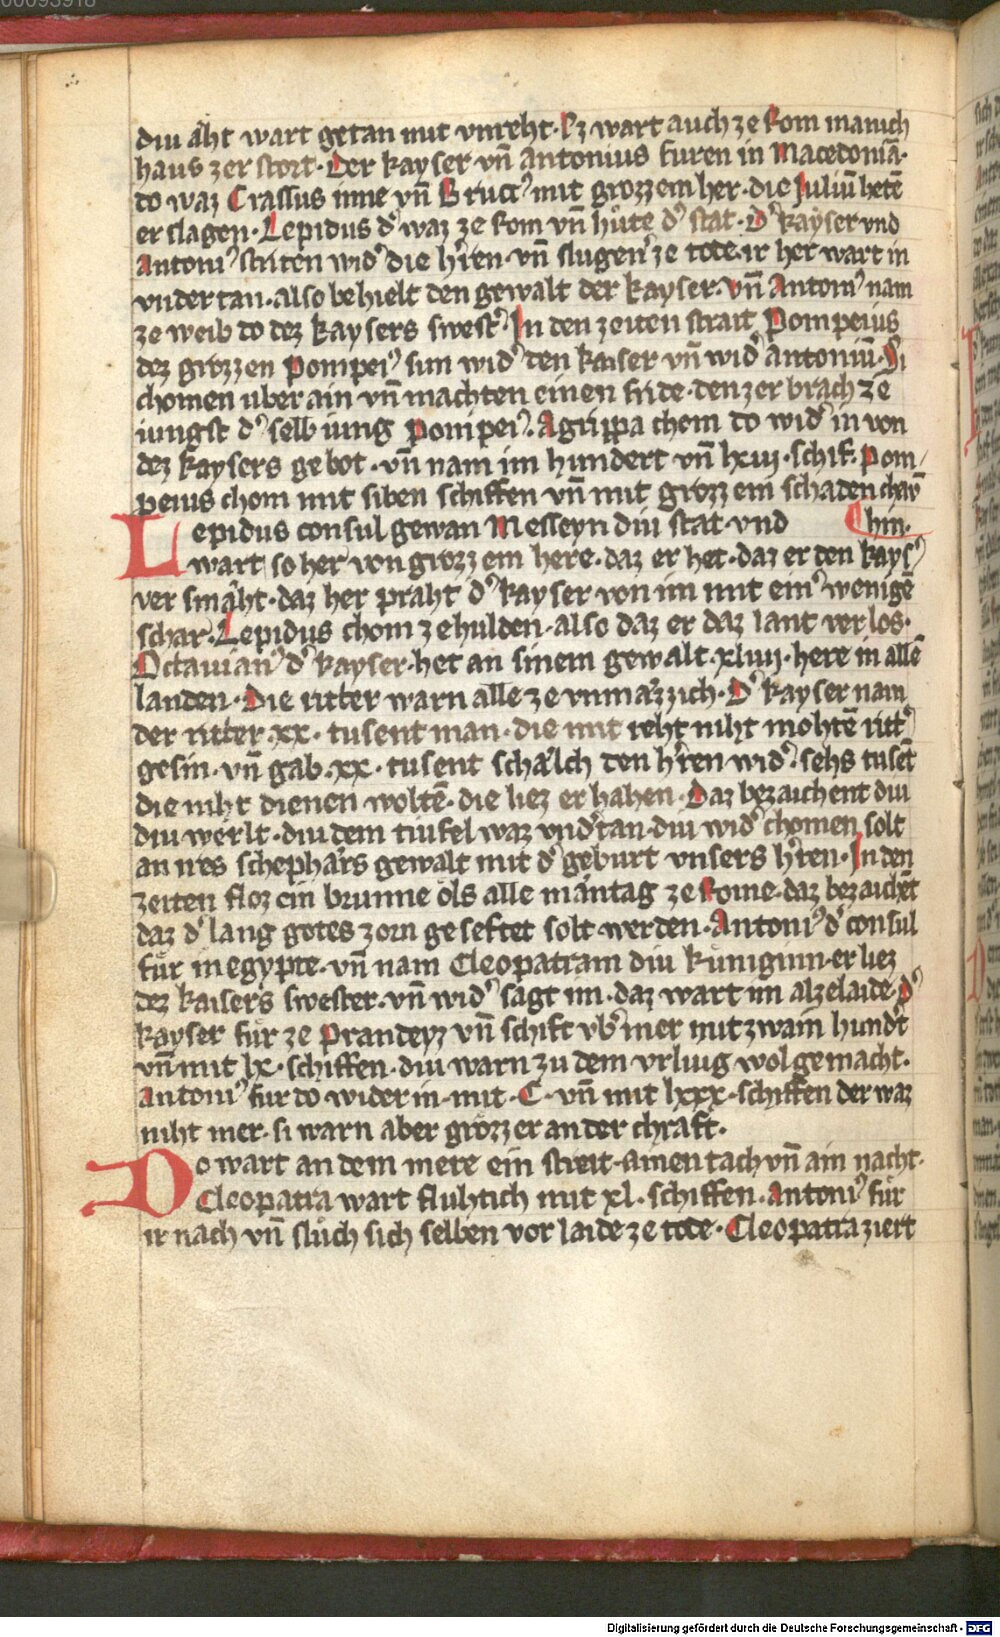 diu aͤht wart getan mit vnreht· Ez wart auch ze Rom manich
haus zer stort· Der kayser vn̄ Antonius furen in Macedoniā·
do waz Crassus inne vn̄ Bruct᾿ mit grozzem her· die Juliū hetē
er slagen· Lepidus d᾿ waz ze Rom vn̄ huͤte d᾿ stat· D᾿ kayser vnd
Antoni᾿ striten wid᾿ die h᾿ren· vn̄ slugen᾿ ze tode· ir her wart in
vnder tan· also behielt den gewalt der kayser· vn̄ Antoni᾿ nam
ze weib do dez kaysers swest᾿· In den zeiten strait Pompeius
dez grozzen Pompei᾿ sun wid᾿ den kaiser vn̄ wid᾿ Antoniū· Si
chomen uber ain vn̄ machten einen fride· den zer brach ze
iungst d᾿ selb iung Pompei᾿· Agrippa chom do wid᾿ in von
dez kaysers gebot· vn̄ nam im hundert vn̄ lxiij· schif· Pom/
peius chom mit siben schiffen vn̄ mit grozzem schaden chawͫ
Lepidus consul gewan Messeyn diu stat· vnd hin·
wart so her von grozzem here· daz er het· daz er den kays᾿
ver smaͤht· daz her praht d᾿ kayser von im mit ein᾿ wenigē
schar· Lepidus chom ze hulden· also daz er daz lant verlos·
Octauian᾿ d᾿ kayser· het an sinem gewalt· xliiij· here in allē
landen· Die ritter warn alle ze vnmaͤzzich· D᾿ kayser nam
der ritter· xx· tusent man· die mit reht niht mohtē ritt᾿
gesin· vn̄ gab· xx· tusent schaͤlch den h᾿ren wid᾿· sehs tusēt
die niht dienen woltē· die liez er hahen· Daz bezaichent diu
diu werlt· diu dem tiufel waz vnd᾿tan· diu wid᾿ chomen solt
an ires schephaͤrs gewalt mit d᾿ geburt vnsers h᾿ren· In den
zeiten floz ein brunne oͤls alle maͤntag ze Rome· daz bezaichēt
daz d᾿ lang gotes zorn geseftet solt werden· Antoni᾿ d᾿ consul
fuͤr in egypte· vn̄ nam Cleopatram diu kuͤniginn· er liez
dez kaisers swester· vn̄ wid᾿ sagt im· daz wart im alze laide· D᾿
kayser fuͤr ze Prandeyz vn̄ schift vb᾿ mer mit zwain hund᾿t
vn̄ mit lx· schiffen· diu warn zu dem vrliug wol gemacht·
Antoni᾿ fur do wider in· mit· C· vn̄ mit lxxx· schiffen der waz
niht mer· si warn aber grozzer an der chraft·
Do wart an dem mere ein streit· ainen tach vn̄ ain nacht·
Cleopatra wart fluhtich mit xl· schiffen· Antoni᾿ fuͤr
ir nach vn̄ sluͤch sich selben vor laide ze tode· Cleopatra ziert
Digitalisierung gefördert durch die Deutsche Forschungsgemeinschaft - DFG